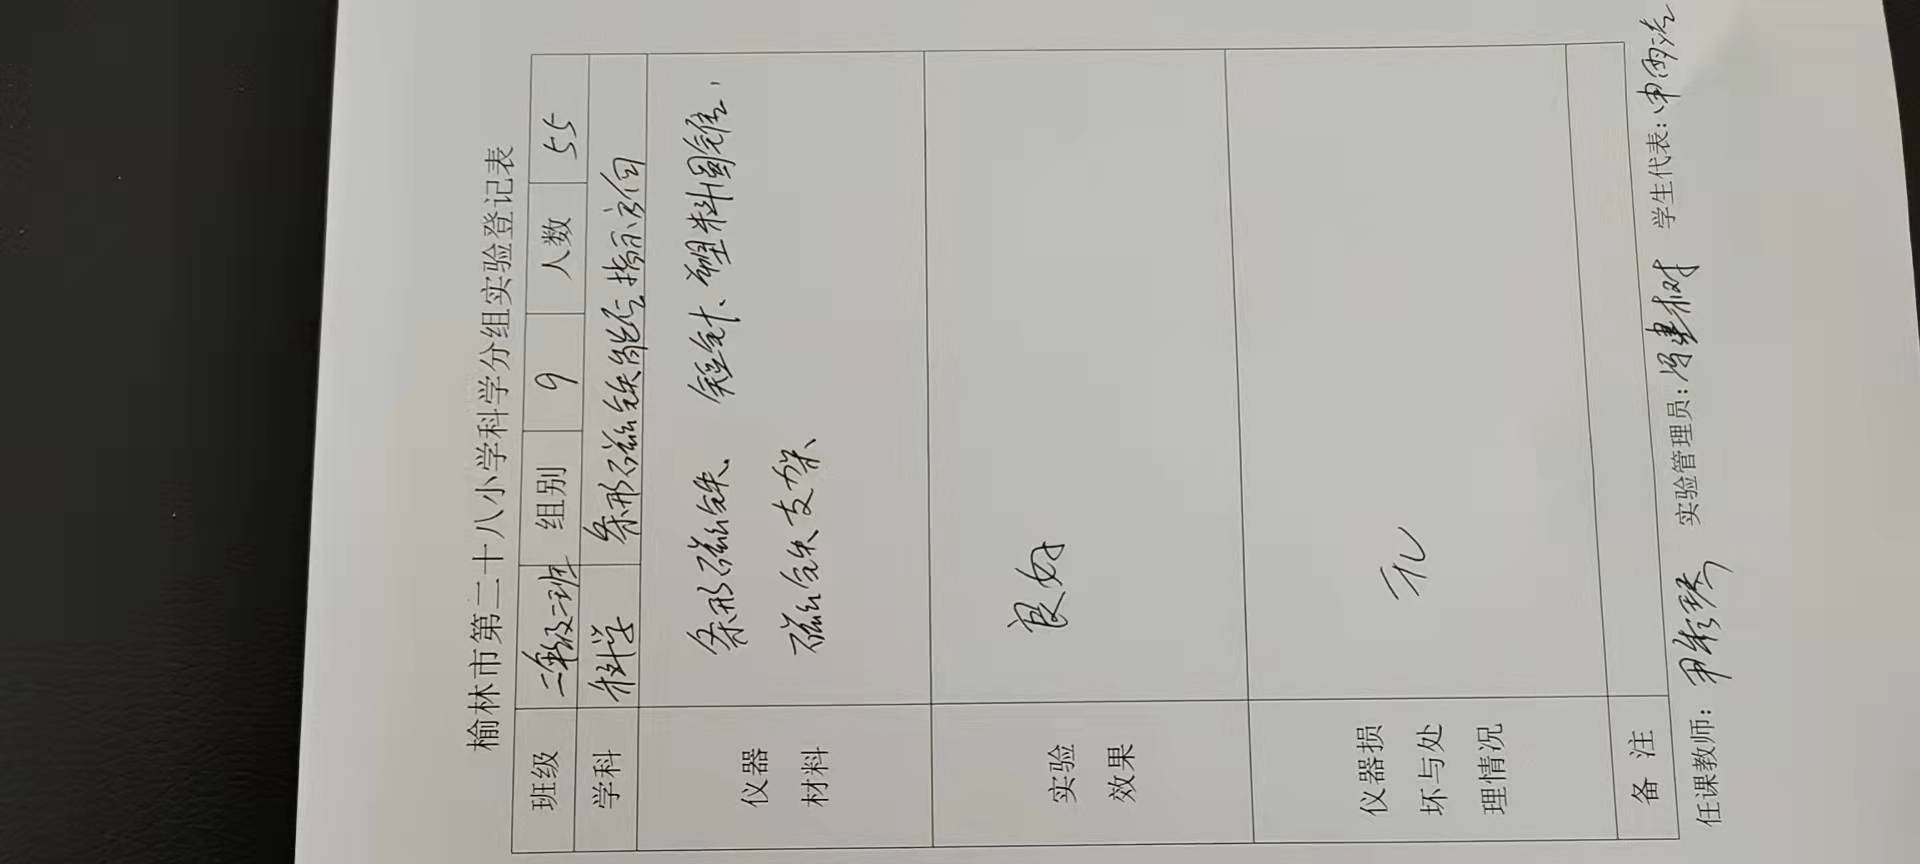 榆林市第二十八小学科学分组实验登记表
班级 二年级二班 组别 9 人数 55
学科 科学 条形磁铁能指示方向
仪器材料 条形磁铁、 短针、塑料圆锥、
磁铁支架、
实验效果 良好
仪器损坏与处理情况 无
备 注
任课教师: 实验管理员: 冯建树 学生代表: 申雨